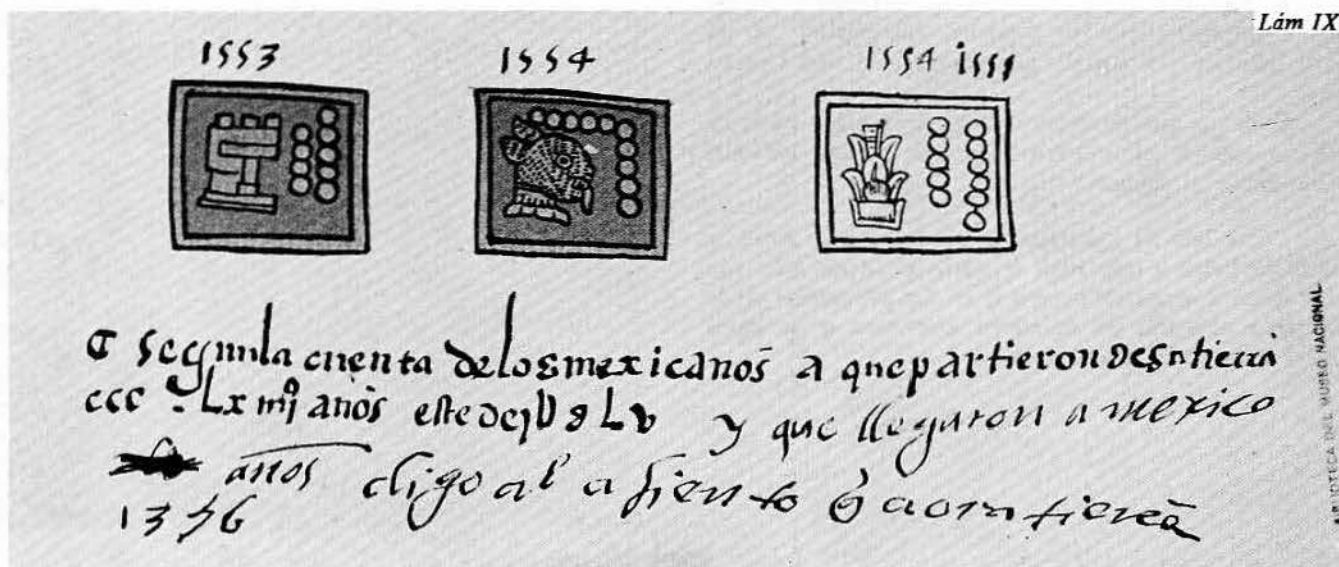 Lám IX
1553 1554 1554 i555
segun la cuenta de los mexicanos a que partieron de su tierra
ccc y Lx años este de Lv y que llegaron a mexico
años digo al asiento q aora tiene
13
BIBLIOTECA DEL MUSEO NACIONAL